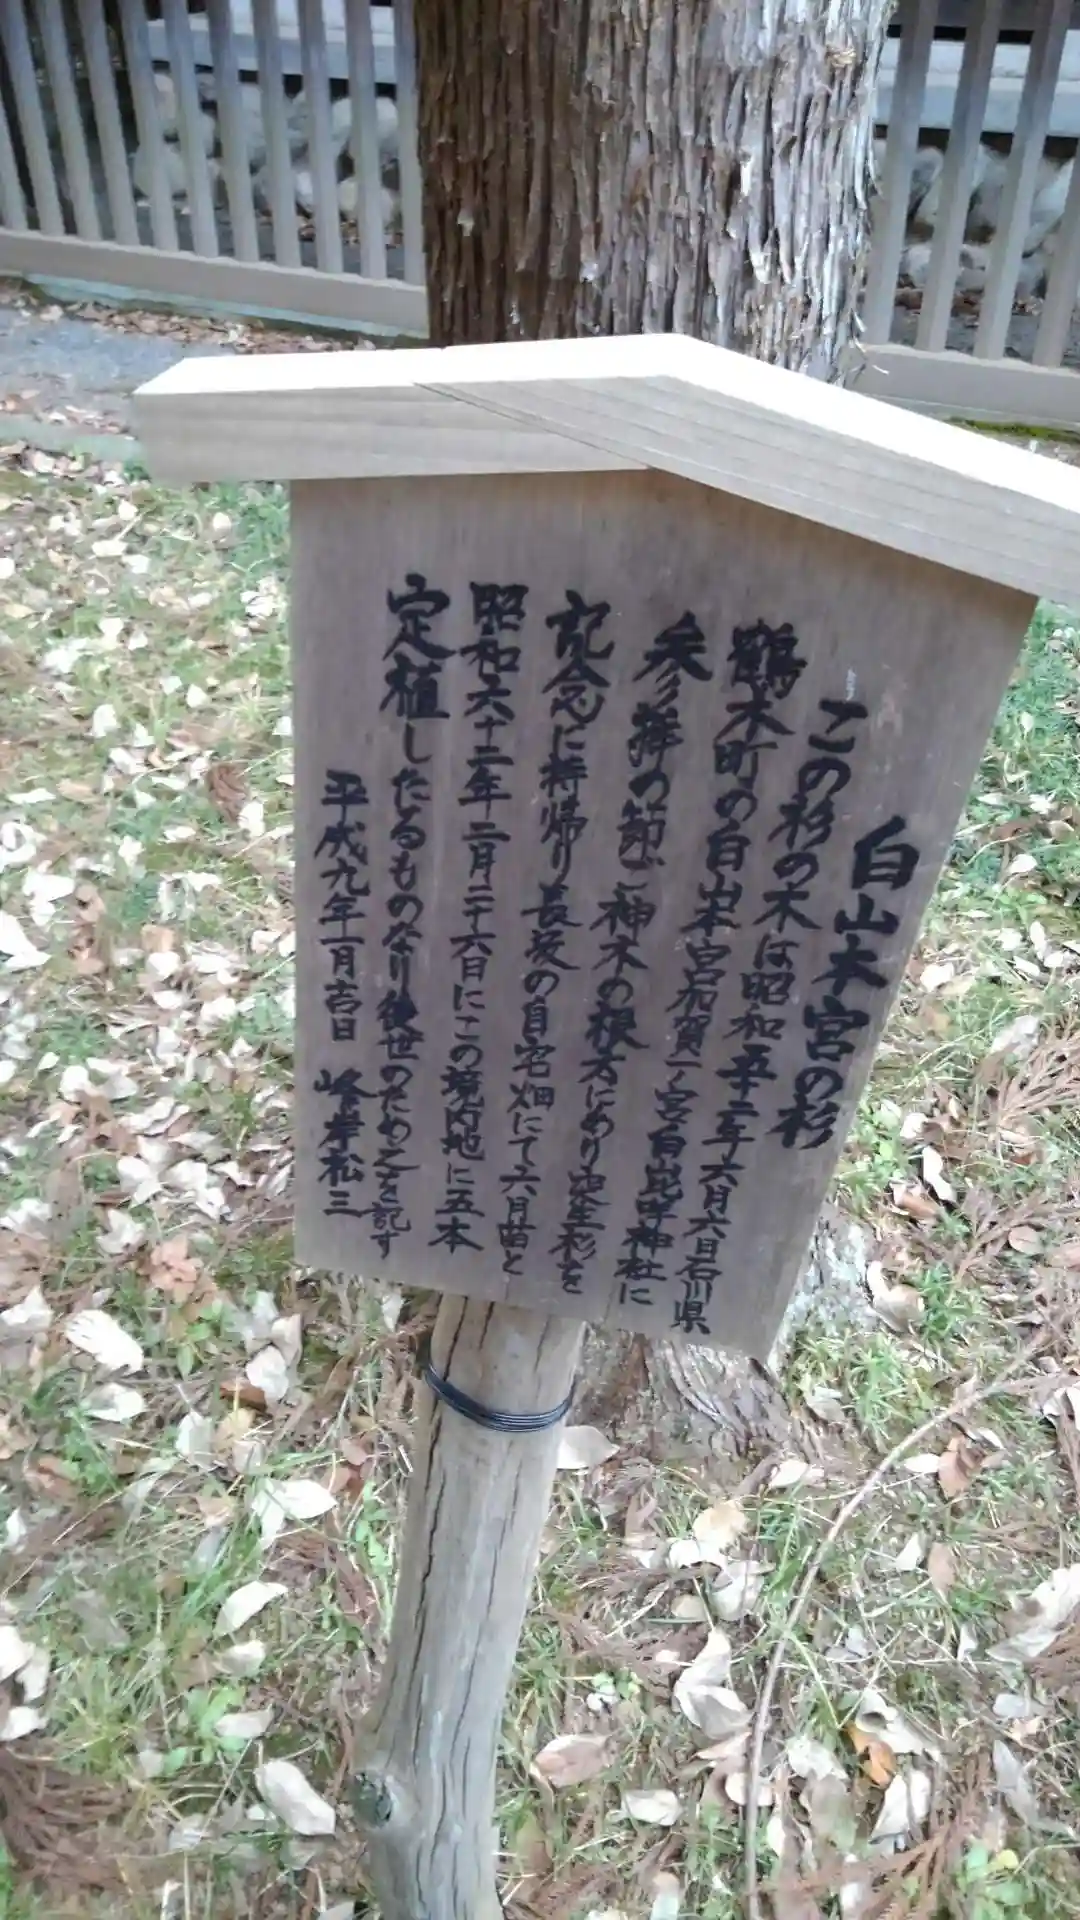 白山本宮の杉
この杉の木は昭和五十二年六月六日石川県
鶴木町の白山本宮加賀一ノ宮白山比咩神社に
参り拝の節ご神木の根方にあり実生杉を
記念に持帰り長後の自宅畑にて六月苗と
昭和六十二年二月二十六日にこの境内地に五本
定植したるものなり後世のため之を記す
平成九年一月吉日 峰岸松三